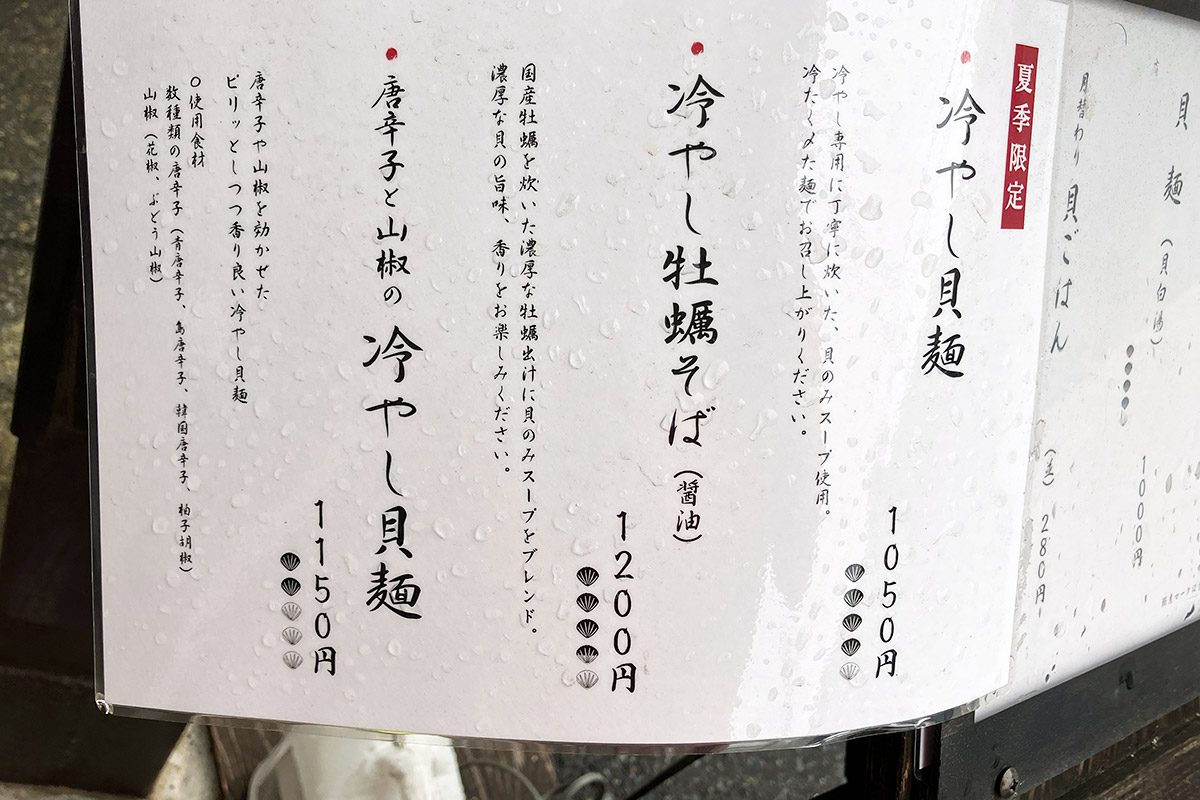 貝麺（貝白湯）
1000円
月替わり貝ごはん
280円
夏季限定
冷やし貝麺
冷やし専用に丁寧に炊いた、貝のみスープ使用。
冷たく〆た麺でお召し上がりください。
1050円
冷やし牡蠣そば（醤油）
国産牡蠣を炊いた濃厚な牡蠣出汁に貝のみスープをブレンド。
濃厚な貝の旨味、香りをお楽しみください。
1200円
唐辛子と山椒の冷やし貝麺
唐辛子や山椒を効かせた
ピリッとしつつ香り良い冷やし貝麺
○使用食材
数種類の唐辛子（青唐辛子、島唐辛子、韓国唐辛子、柚子胡椒）
山椒（花椒、ぶどう山椒）
1150円